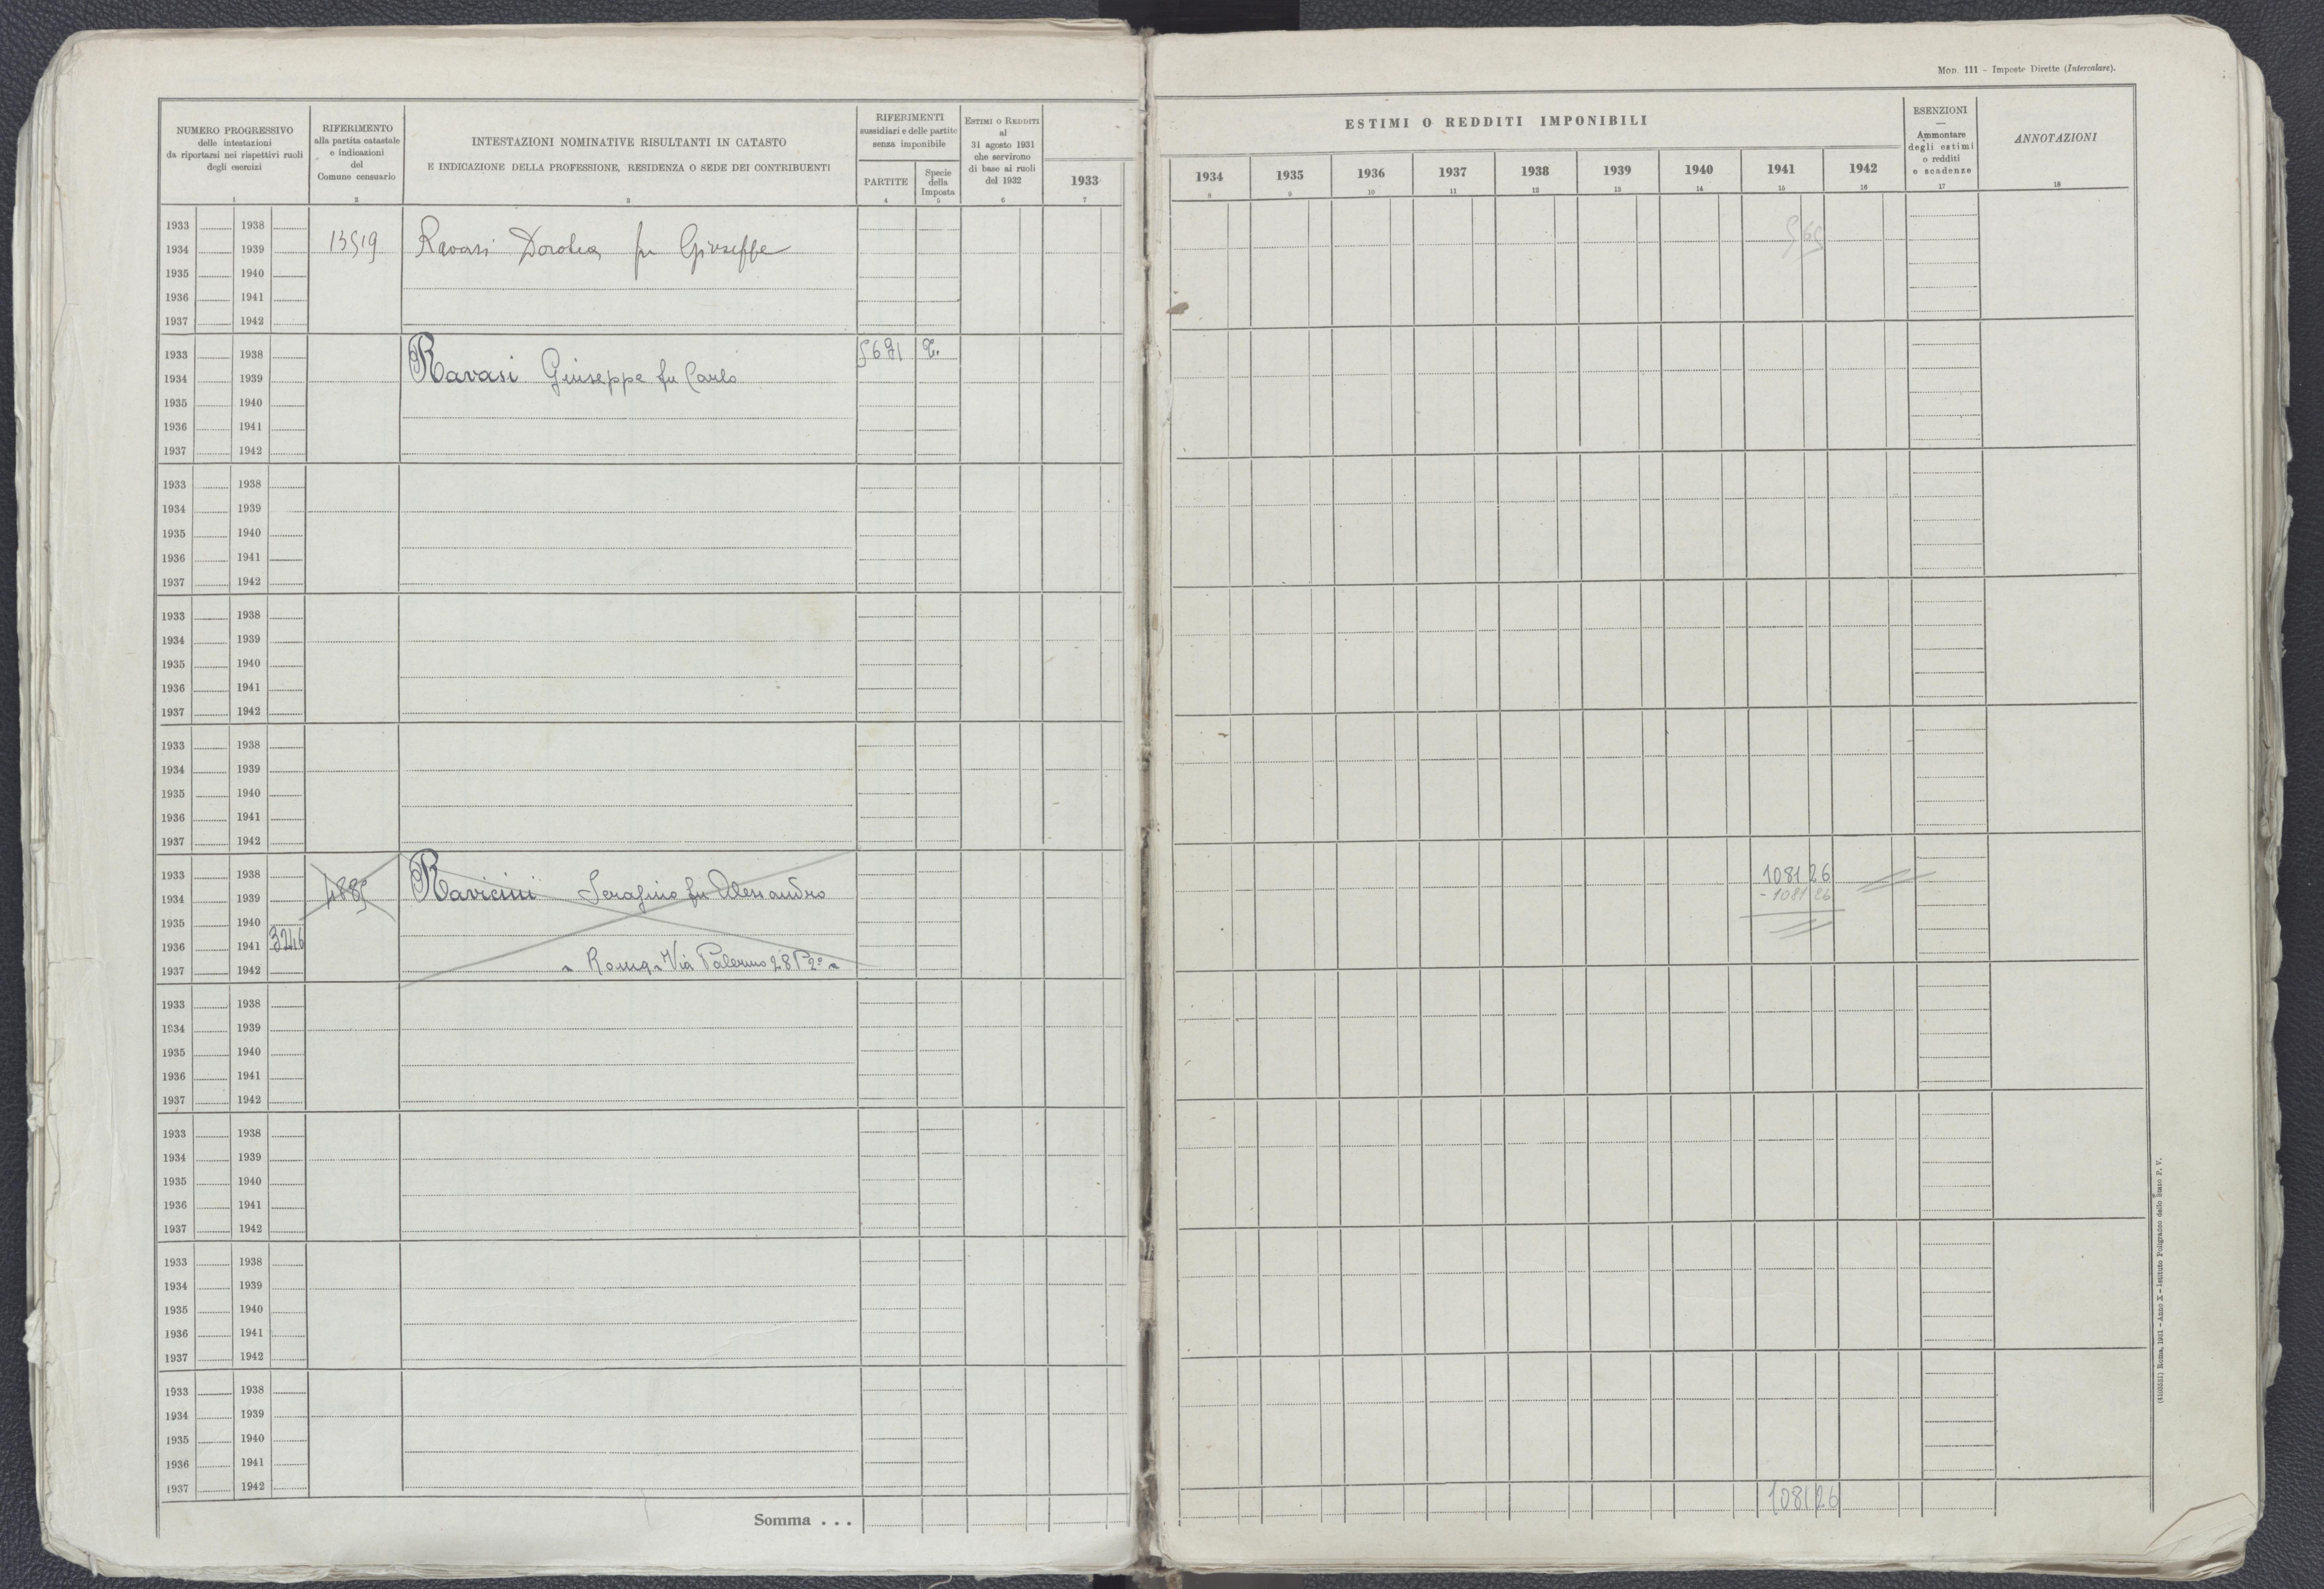 Mod. 111 - Imposte Dirette (Intercalare).
NUMERO PROGRESSIVO
delle intestazioni
da riportarsi nei rispettivi ruoli
degli esercizi
1
RIFERIMENTO
alla partita catastale
e indicazioni
del
Comune censuario
2
INTESTAZIONI NOMINATIVE RISULTANTI IN CATASTO
E INDICAZIONE DELLA PROFESSIONE, RESIDENZA O SEDE DEI CONTRIBUENTI
3
RIFERIMENTI
sussidiari e delle partite
senza imponibile
PARTITE
4
Specie
della
Imposta
5
ESTIMI O REDDITI
al
31 agosto 1931
che servirono
di base ai ruoli
del 1932
6
1933
7
ESTIMI O REDDITI IMPONIBILI
1934 1935 1936 1937 1938 1939 1940 1941 1942
8 9 10 11 12 13 14 15 16
ESENZIONI
—
Ammontare
degli estimi
o redditi
e scadenze
17
ANNOTAZIONI
18
1933 1938
1934 1939 13519 Ravasi Dorotea fu Giuseppe
1935 1940
1936 1941
1937 1942
1933 1938 5691
1934 1939 Ravasi Giuseppe fu Carlo
1935 1940
1936 1941
1937 1942
1933 1938
1934 1939
1935 1940
1936 1941
1937 1942
1933 1938
1934 1939
1935 1940
1936 1941
1937 1942
1933 1938
1934 1939
1935 1940
1936 1941
1937 1942
1933 1938 1081 26
1934 1939 4885 Ravicini Serafino fu Alessandro - 1081 26
1935 1940
1936 1941 3246
1937 1942 - Roma - Via Palermo 28 P. 2º -
1933 1938
1934 1939
1935 1940
1936 1941
1937 1942
1933 1938
1934 1939
1935 1940
1936 1941
1937 1942
1933 1938
1934 1939
1935 1940
1936 1941
1937 1942
1933 1938
1934 1939
1935 1940
1936 1941
1937 1942
Somma . . . 1081 26
Roma, 1931 - Anno X - Istituto Poligrafico dello Stato P. V.